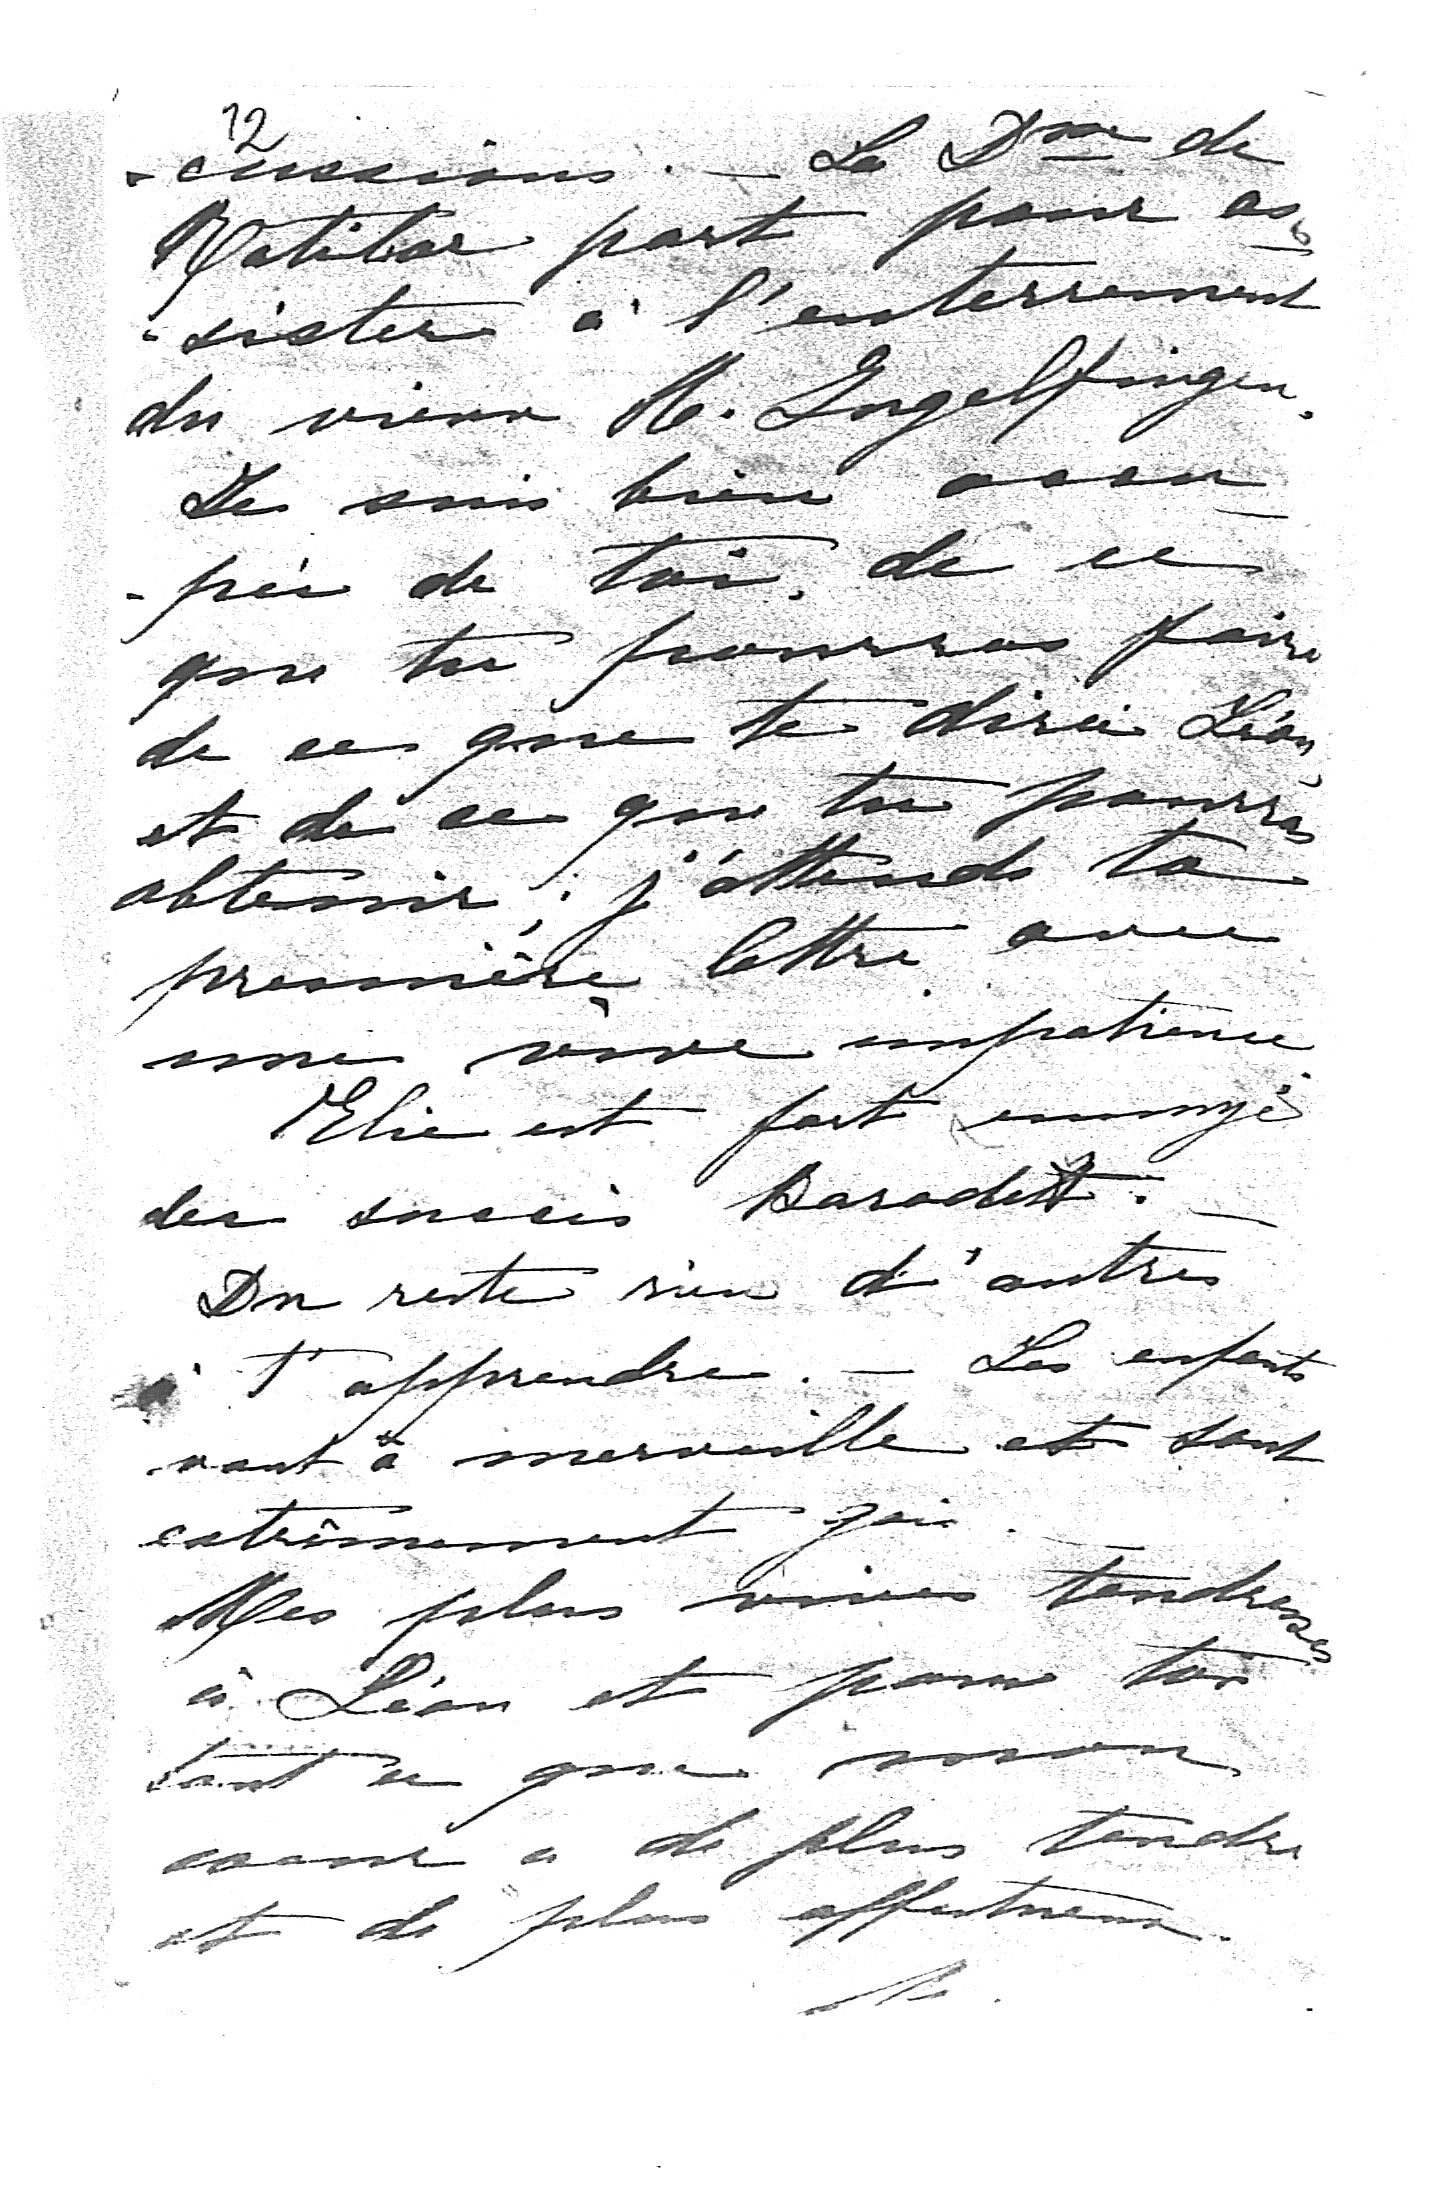 12
-cussions. — Le Dr de
Ratibor part pour as-
-sister à l'enterrement
du vieux M. Ingelfingen.
Je suis bien occu-
-pée de toi, de ce
que tu pourras faire
de ce que te dira Léon,
et de ce que tu pourras
obtenir ; j'attends ta
première lettre avec
une vive impatience
Elie est fort ennuyé
du succès Barodet. —
Du reste rien d'autre
à t'apprendre. — Les enfants
vont à merveille et sont
extrêmement gais. —
Mes plus vives tendresses
à Léon et pour toi
tout ce que mon
coeur a de plus tendre
et de plus affectueux.
M.